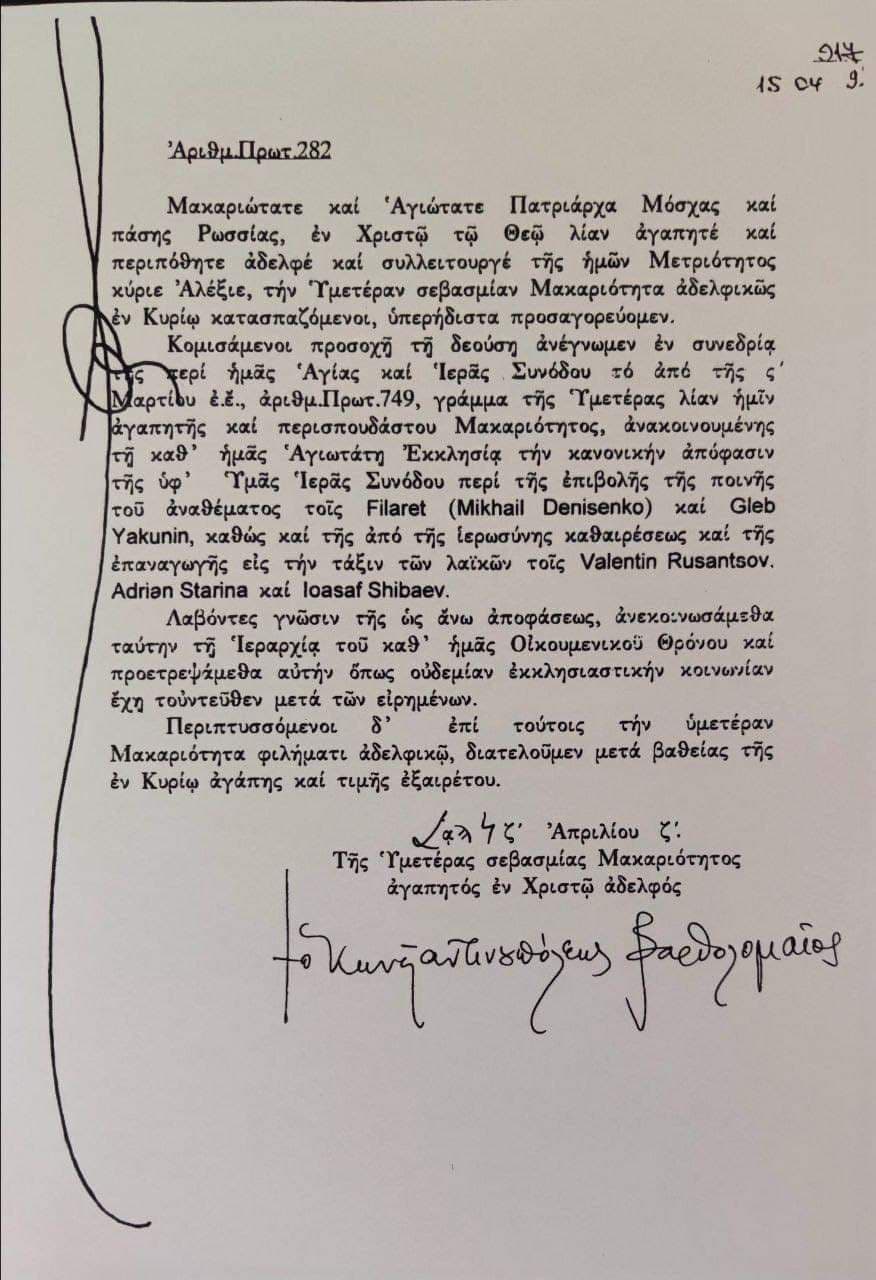 217
15 04 9.
Ἀριθμ.Πρωτ.282
Μακαριώτατε καί Ἁγιώτατε Πατριάρχα Μόσχας καί
πάσης Ρωσσίας, ἐν Χριστῷ τῷ Θεῷ λίαν ἀγαπητέ καί
περιπόθητε ἀδελφέ καί συλλειτουργέ τῆς ἡμῶν Μετριότητος
κύριε Ἀλέξιε, τήν Ὑμετέραν σεβασμίαν Μακαριότητα ἀδελφικῶς
ἐν Κυρίῳ κατασπαζόμενοι, ὑπερήδιστα προσαγορεύομεν.
Κομισάμενοι προσοχῇ τῇ δεούσῃ ἀνέγνωμεν ἐν συνεδρίᾳ
τῆς περί ἡμᾶς Ἁγίας καί Ἱερᾶς Συνόδου τό ἀπό τῆς ς΄
Μαρτίου ἐ.ἔ., ἀριθμ.Πρωτ.749, γράμμα τῆς Ὑμετέρας λίαν ἡμῖν
ἀγαπητῆς καί περισπουδάστου Μακαριότητος, ἀνακοινουμένης
τῇ καθ' ἡμᾶς Ἁγιωτάτῃ Ἐκκλησίᾳ τήν κανονικήν ἀπόφασιν
τῆς ὑφ' Ὑμᾶς Ἱερᾶς Συνόδου περί τῆς ἐπιβολῆς τῆς ποινῆς
τοῦ ἀναθέματος τοῖς Filaret (Mikhail Denisenko) καί Gleb
Yakunin, καθώς καί τῆς ἀπό τῆς ἱερωσύνης καθαιρέσεως καί τῆς
ἐπαναγωγῆς εἰς τήν τάξιν τῶν λαϊκῶν τοῖς Valentin Rusantsov.
Adrian Starina καί Ioasaf Shibaev.
Λαβόντες γνῶσιν τῆς ὡς ἄνω ἀποφάσεως, ἀνεκοινωσάμεθα
ταύτην τῇ Ἱεραρχίᾳ τοῦ καθ' ἡμᾶς Οἰκουμενικοῦ Θρόνου καί
προετρεψάμεθα αὐτήν ὅπως οὐδεμίαν ἐκκλησιαστικήν κοινωνίαν
ἔχῃ τοὐντεῦθεν μετά τῶν εἰρημένων.
Περιπτυσσόμενοι δ' ἐπί τούτοις τήν ὑμετέραν
Μακαριότητα φιλήματι ἀδελφικῷ, διατελοῦμεν μετά βαθείας τῆς
ἐν Κυρίῳ ἀγάπης καί τιμῆς ἐξαιρέτου.
ζ΄ Ἀπριλίου ζ΄.
Τῆς Ὑμετέρας σεβασμίας Μακαριότητος
ἀγαπητός ἐν Χριστῷ ἀδελφός
Βαρθολομαῖος